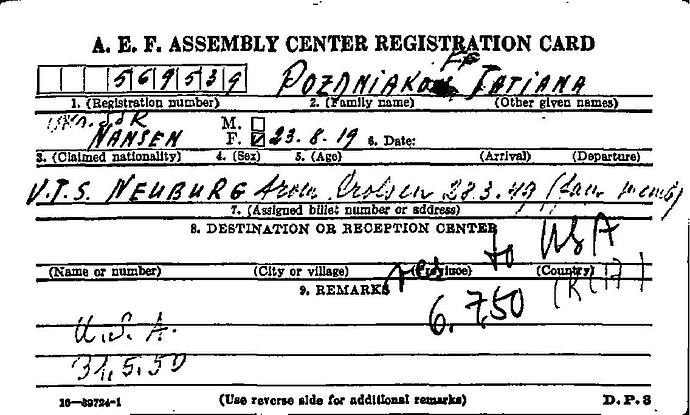 A. E. F. ASSEMBLY CENTER REGISTRATION CARD
569539 POZDNIAKO TATIANA
1. (Registration number) 2. (Family name) (Other given names)
M.
NANSEN F. 23.8.19 6. Date:
3. (Claimed nationality) 4. (Sex) 5. (Age) (Arrival) (Departure)
V.T.S. NEUBURG from Arolsen 28.3.49 (fam memb
7. (Assigned billet number or address)
8. DESTINATION OR RECEPTION CENTER
to USA
(Name or number) (City or village) (Province) (Country)
9. REMARKS
6.7.50
U.S.A.
31.5.50
16—39724-1 (Use reverse side for additional remarks) D.P.3